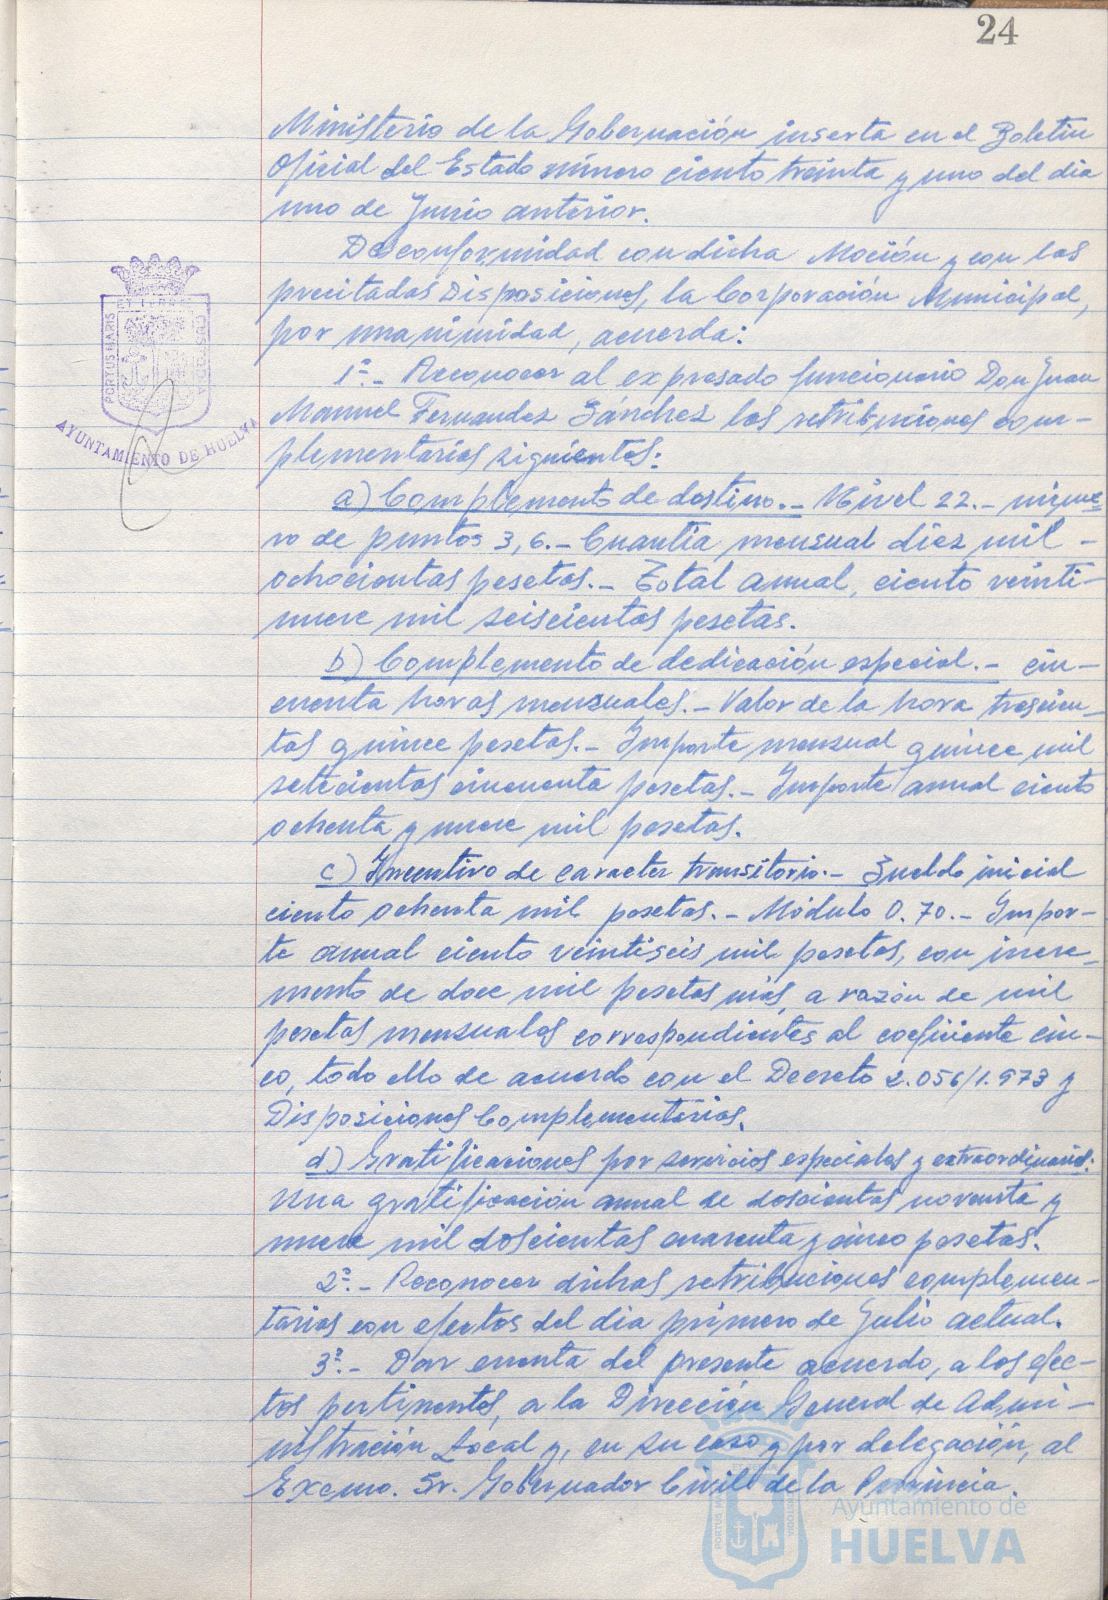 24
Ministerio de la Gobernación inserta en el Boletin
Oficial del Estado número ciento treinta y uno del dia
uno de Junio anterior.
De conformidad con dicha Moción y con las
precitadas Disposiciones, la Corporación Municipal,
por unanimidad, acuerda:
1º.- Reconocer al expresado funcionario Don Juan
Manuel Fernandez Sánchez las retribuciones com-
plementarias siguientes:
a) Complemento de destino.- Nivel 22.- núme-
ro de puntos 3,6.- Cuantia mensual diez mil -
ochocientas pesetas.- Total anual, ciento veinti-
nueve mil seiscientas pesetas.
b) Complemento de dedicación especial.- cin-
cuenta horas mensuales.- Valor de la hora trescien-
tas quince pesetas.- Importe mensual quince mil
setecientas cincuenta pesetas.- Importe anual ciento
ochenta y nueve mil pesetas.
c) Incentivo de caracter transitorio.- Sueldo inicial
ciento ochenta mil pesetas.- Módulo 0.70.- Impor-
te anual ciento veintiseis mil pesetas, con incre-
mento de doce mil pesetas más, a razón de mil
pesetas mensuales correspondientes al coeficiente cin-
co, todo ello de acuerdo con el Decreto 2.056/1.973 y
Disposiciones Complementarias.
d) Gratificaciones por servicios especiales y extraordinarios:
Una gratificación anual de doscientas noventa y
nueve mil doscientas cuarenta y cinco pesetas.
2º.- Reconocer dichas retribuciones complemen-
tarias con efectos del dia primero de Julio actual.
3º.- Dar cuenta del presente acuerdo, a los efec-
tos pertinentes, a la Dirección General de Admi-
nistración Local y, en su caso y por delegación, al
Excmo. Sr. Gobernador Civil de la Provincia.
PORTUS MARIS
CUSTODIA
AYUNTAMIENTO DE HUELVA
Ayuntamiento de
HUELVA